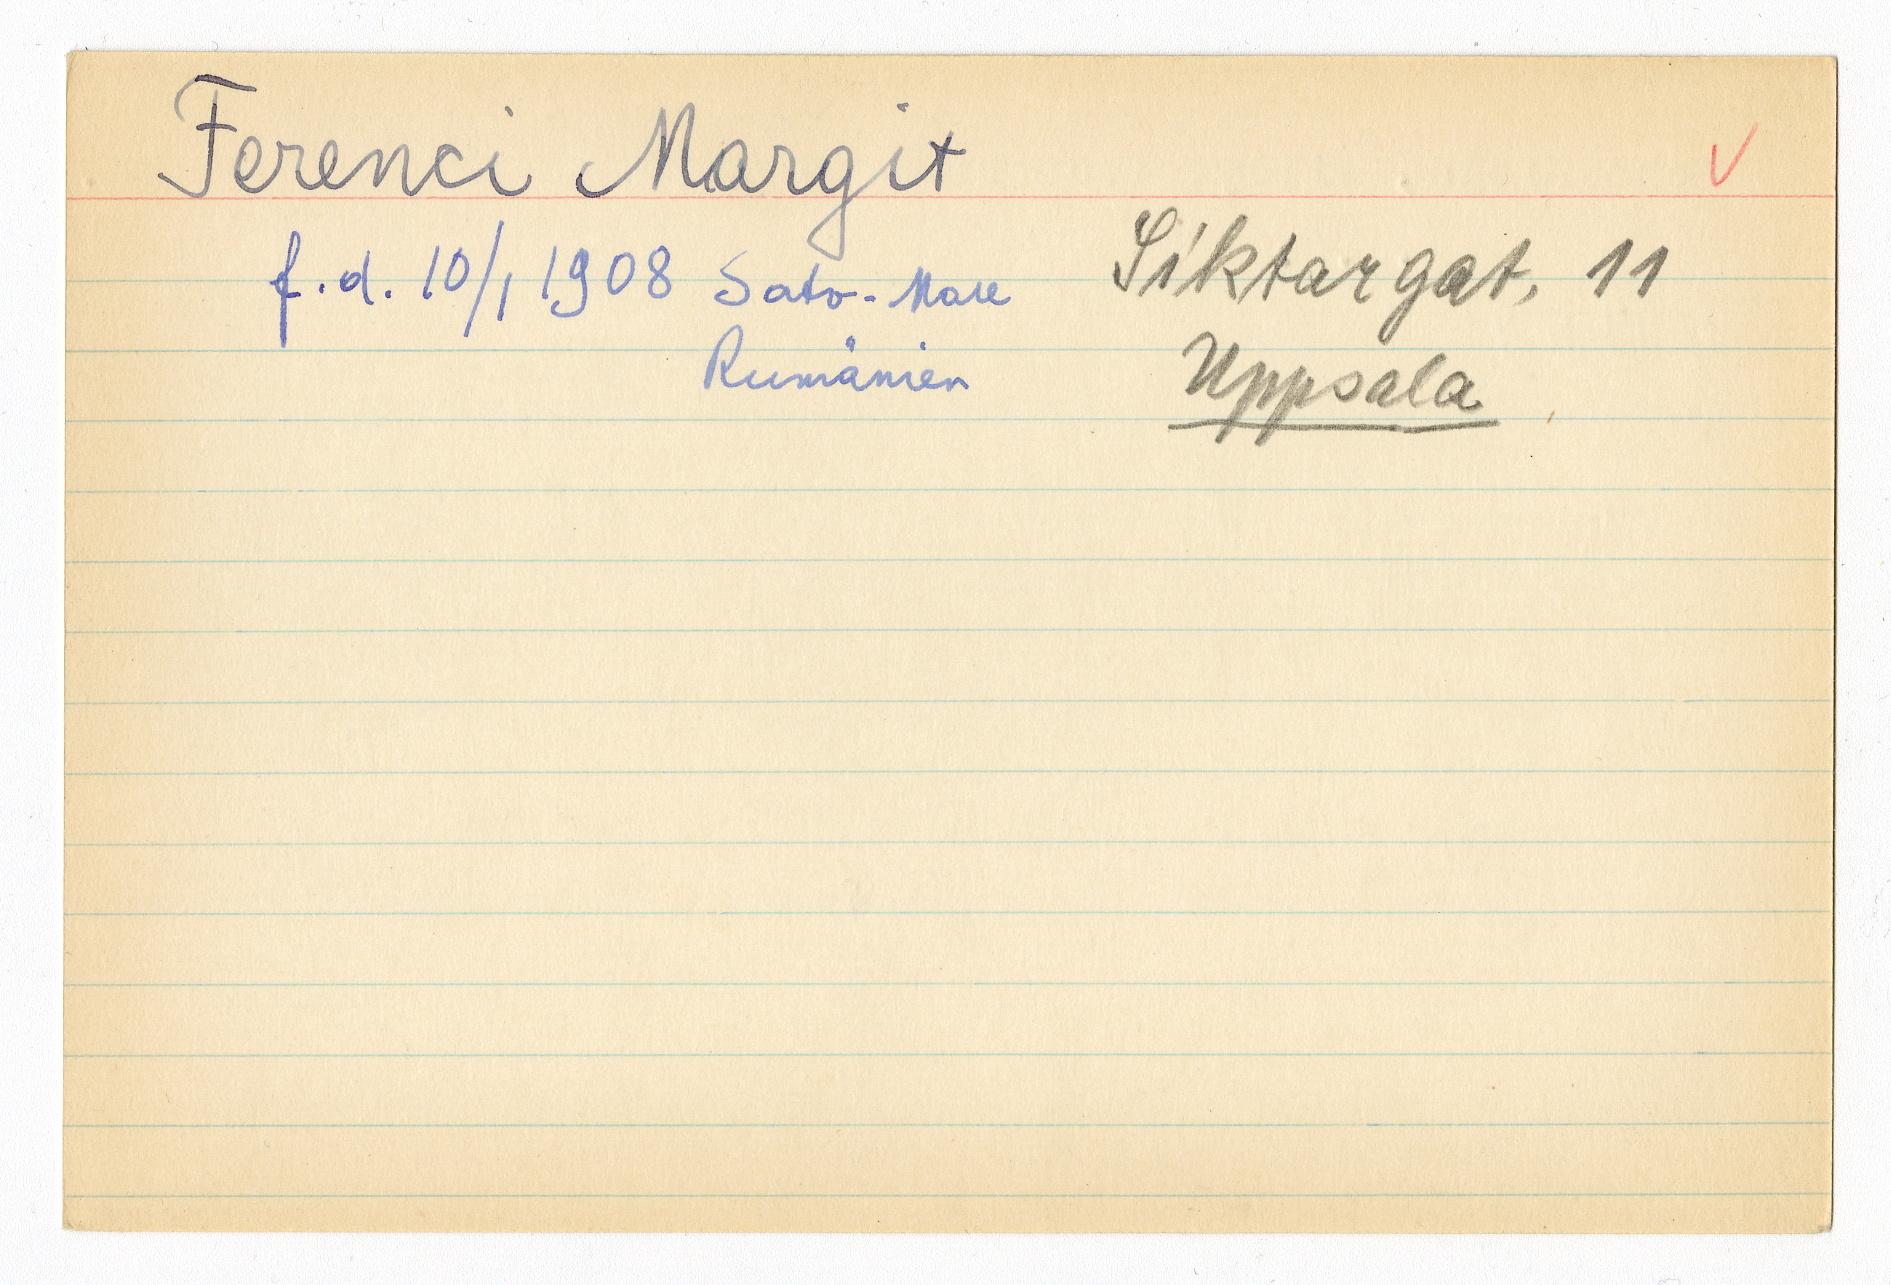 Ferenci Margit
f.d. 10/1 1908 Sato-Mare
Rumänien
Siktargat. 11
Uppsala